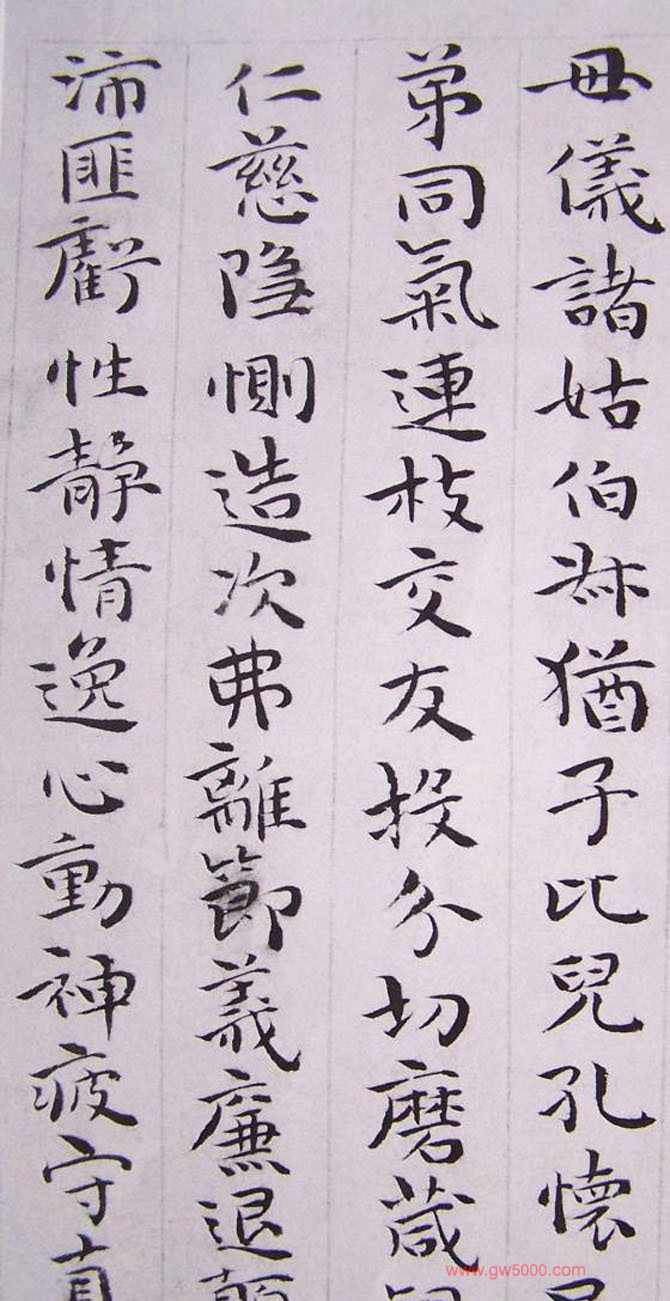 母儀諸姑伯叔猶子比兒孔懷
弟同氣連枝交友投分切磨箴
仁慈隐惻造次弗離節義廉退顛
沛匪虧性静情逸心動神疲守真
www.gw5000.com